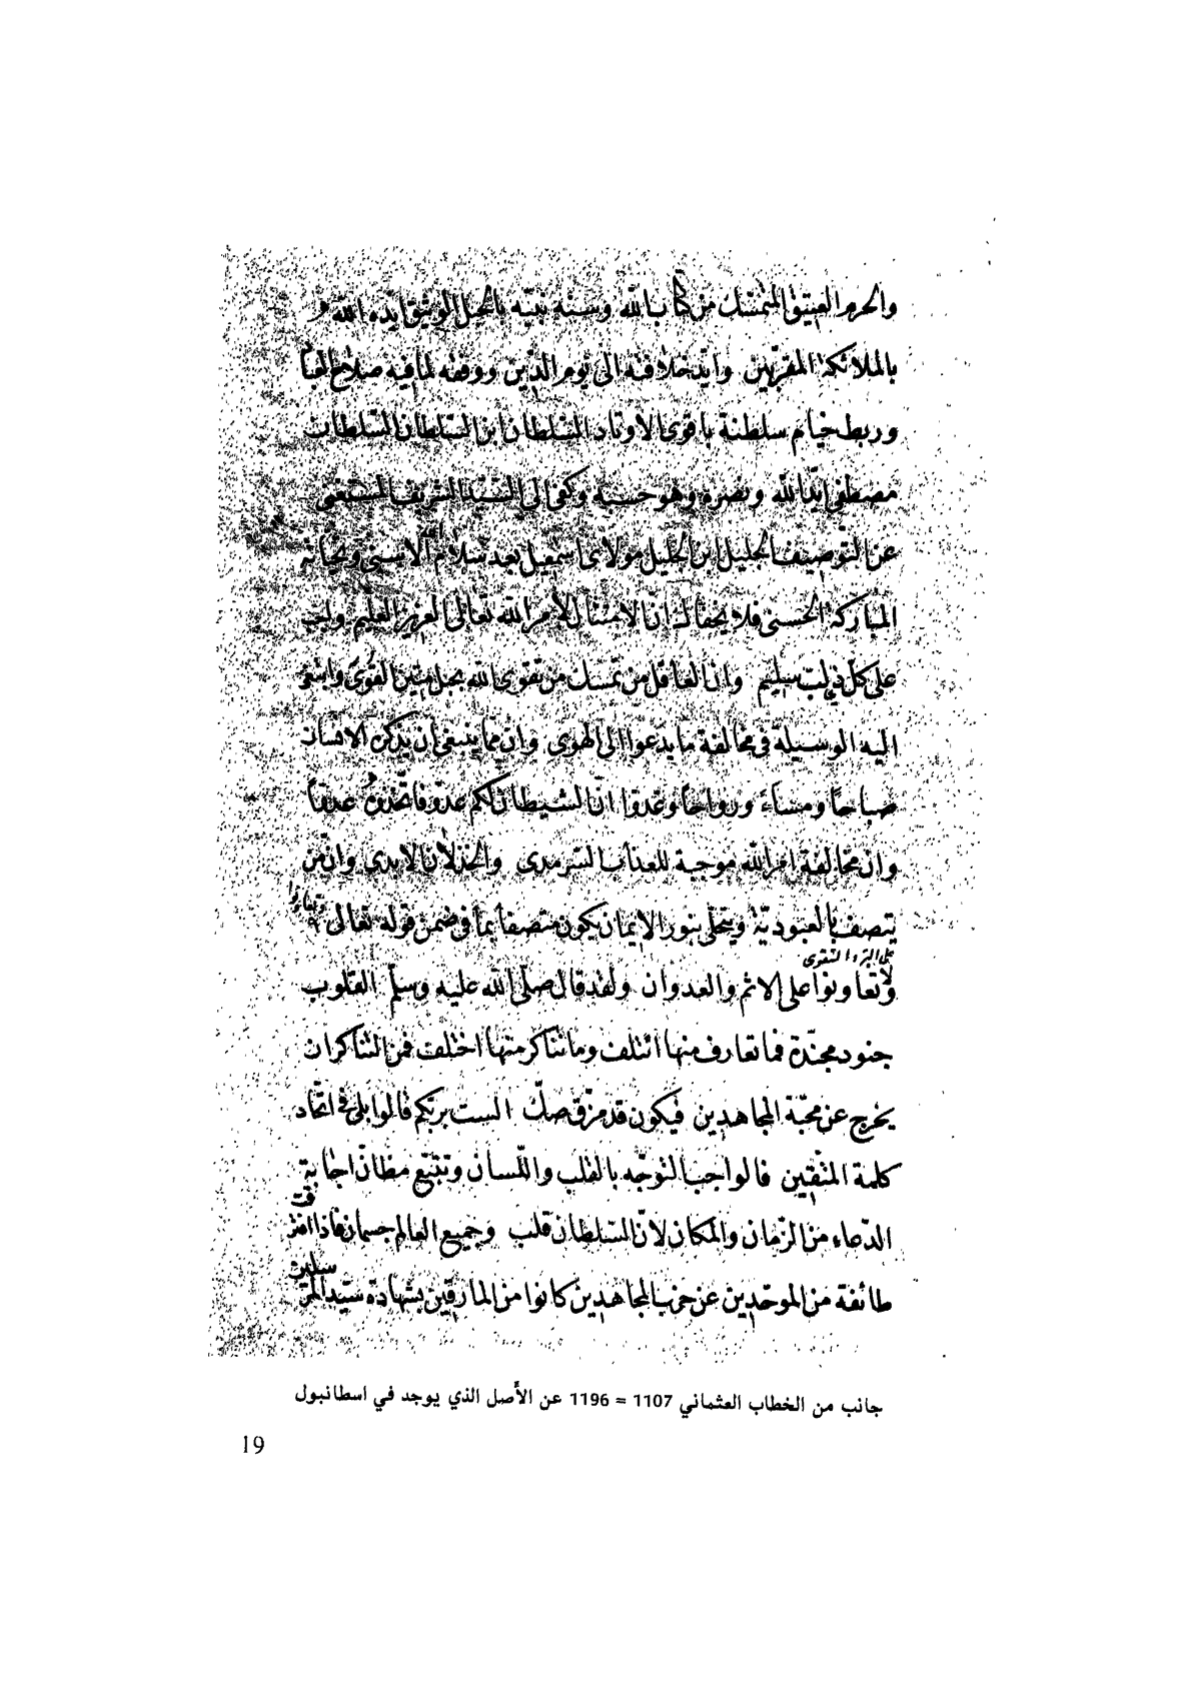 والحرم العتيق المتمسك من كتاب الله وسنة نبيه بالحبل الوثيق ايده الله
بالملائكة المقربين وايد خلافته الى يوم الدين ووفقه لما فيه صلاح العباد
وربط خيام سلطنة باقوى الاوتاد السلطان ابن السلطان السلطان
مصطفى ايد الله ونصره وهو حسبه وكفى الى السيد الشريف المستغنى
عن التوصيف الجليل ابن الجليل مولاى اسمعيل بعد سلام الله الاسنى وتحياته
المباركة الحسنى فلا يخفاك ان الامتثال لأمر الله تعالى العزيز العليم واجب
على كل ذى لب سليم وان العاقل من تمسك من تقوى الله بحبل متين القوى وابتغى
اليه الوسيلة فى مخالفة ما يدعوا الى الهوى وان مما ينبغى أن يتذكر الانسان
صباحا ومساء ورواحا وغدوا ان الشيطان لكم عدو فاتخذوه عدوا
وان مخالفة امر الله موجبة للعذاب السرمدى والخذلان الابدى وان من
يتصف بالعبودية ويتحلى بنور الايمان يكون متصفا بما فى ضمن قوله تعالى وتعاونوا
على البر والتقوى
ولا تعاونوا على الاثم والعدوان ولقد قال صلى الله عليه وسلم القلوب
جنود مجندة فما تعارف منها ائتلف وما تناكر منها اختلف فمن التناكر ان
يخرج عن محبة المجاهدين فيكون قد مزق صك الست بربكم قالوا بلى فى اتحاد
كلمة المتقين فالواجب التوجه بالقلب واللسان وتتبع مظان اجابة
الدعاء من الزمان والمكان لان السلطان قلب وجميع العالم جسمان فاذا افترقت
طائفة من الموحدين عن حزب المجاهدين كانوا من المارقين بشهادة سيد المرسلين
جانب من الخطاب العثماني 1107 = 1196 عن الأصل الذي يوجد في اسطانبول
19